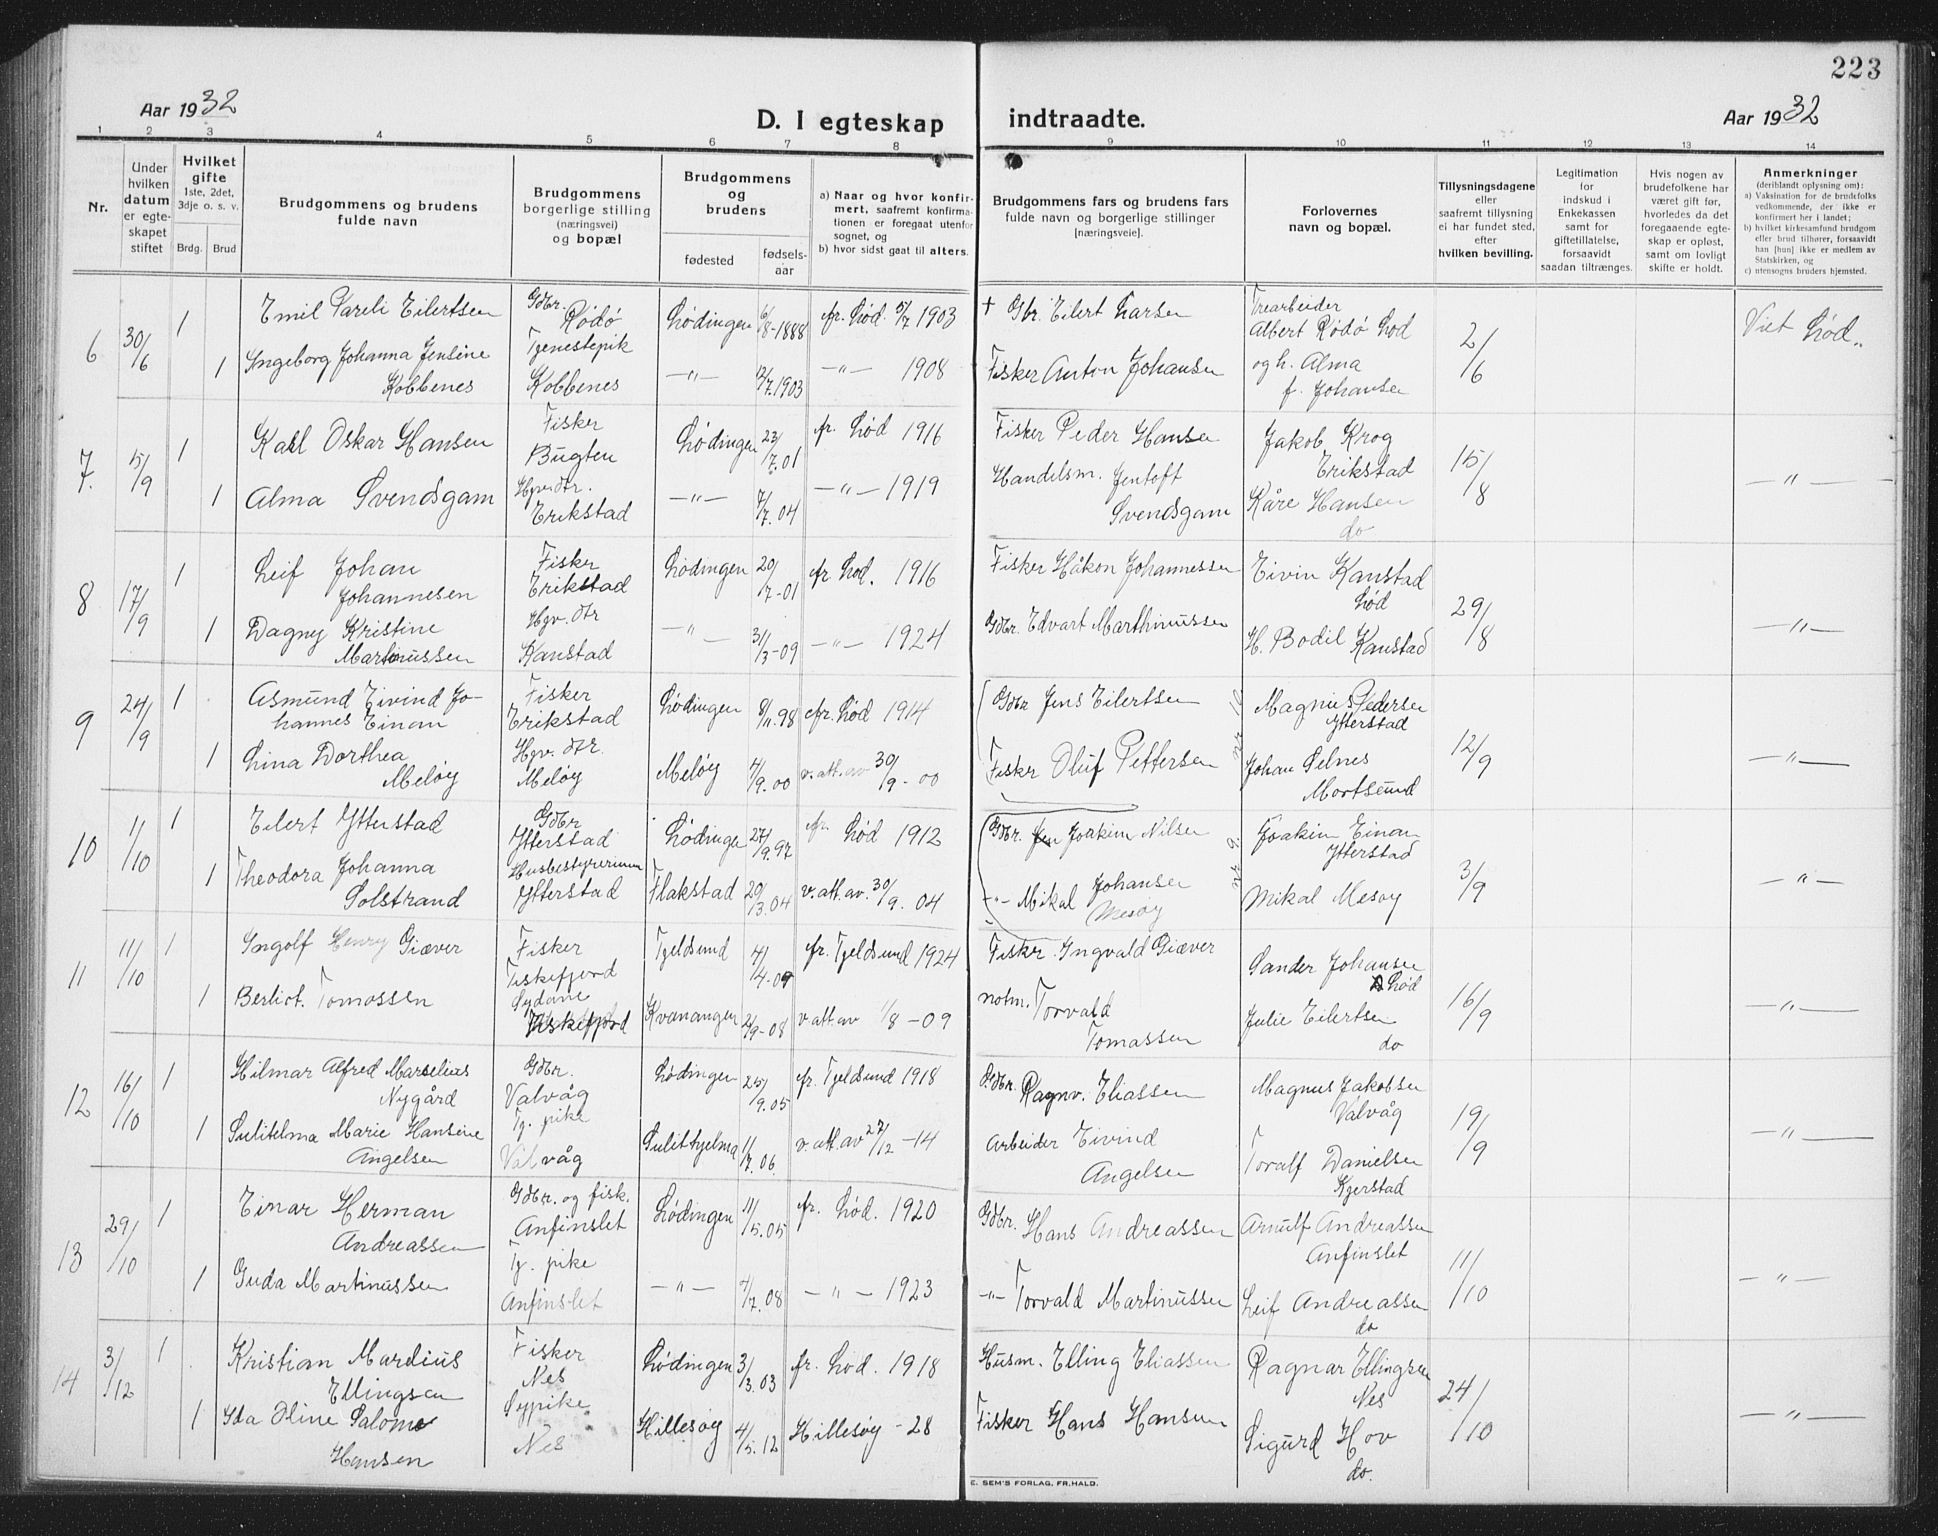 223
Aar 1932
D. I egteskap indtraadte.
Aar 1932
1 2 3 4 5 6 7 8 9 10 11 12 13 14
Nr.
Under
hvilken
datum
er egte-
skapet
stiftet
Hvilket
gifte
1ste, 2det,
3dje o. s. v.
Brdg. Brud
Brudgommens og brudens
fulde navn
Brudgommens
borgerlige stilling
(næringsvei)
og bopæl
Brudgommens
og
brudens
fødested
fødsels-
aar
a) Naar og hvor konfir-
mert, saafremt konfirma-
tionen er foregaat utenfor
sognet, og
b) hvor sidst gaat til alters.
Brudgommens fars og brudens fars
fulde navn og borgerlige stillinger
[næringsveie].
Forlovernes
navn og bopæl.
Tillysningsdagene
eller
saafremt tillysning
ei har fundet sted,
efter
hvilken bevilling.
Legitimation
for
indskud i
Enkekassen
samt for
giftetillatelse,
forsaavidt
saadan tiltrænges.
Hvis nogen av
brudefolkene har
været gift før,
hvorledes da det
foregaaende egte-
skap er opløst,
samt om lovligt
skifte er holdt.
Anmerkninger
(deriblandt oplysning om):
a) Vaksination for de brudefolks
vedkommende, der ikke er
konfirmert her i landet;
b) hvilket kirkesamfund brudgom
eller brud tilhører, forsaavidt
han [hun] ikke er medlem av
Statskirken, og
c) utensogns bruders hjemsted.
6 30/6 1 Emil Pareli Eilertsen Gdbr. Rödö Lödingen 6/8-1888 fr. Löd 5/7 1903 + Gbr. Eilert Larsen Trearbeider
Albert Rödö Lod 2/6 Viet Löd.
1 Ingeborg Johanna Jensine
Kobbenes Tjenestepik
Kobbenes —"— 12/7.1903 —"— 1908 Fisker Anton Johansen og h. Alma
f. Johansen
7. 15/9 1 Karl Oskar Hansen Fisker
Bugten Lödingen 23/7.01 fr. Löd 1916 Fisker Peder Hansen Jakob Krog
Erikstad 15/8 —"—
1 Alma Svendsgam Hgv. dtr.
Erikstad —"— 7/7.04 —"— 1919 Handelsm. Jentoft
Svendsgam Kåre Hansen
do
8 17/9 1 Leif Johan
Johannesen Fisker
Erikstad Lödingen 20/7-01 fr Lod. 1916 Fisker Håkon Johannessen Eivin Kanstad
Löd 29/8 —"—
1 Dagny Kristine
Martinussen Hgv. dtr
Kanstad —"— 31/3-09 —"— 1924 Gdbr. Edvart Marthinussen H. Bodil Kanstad
9 24/9 1 Asmund Eivind Jo-
hannes Einan Fisker
Erikstad Lödingen 8/11.98 fr. Löd 1914 Gdbr Jens Eilertsen Magnus Pedersen
Ytterstad 12/9 —"—
1 Lina Dorthea
Melöy Hgv. dtr.
Melöy Melöy 7/9.00 v. att. av 30/9-00 Fisker Oluf Pettersen Johan Selnes
Mortsund
10 1/10 1 Eilert Ytterstad Gdbr
Ytterstad Lödingen 27/9.97 fr. Löd 1912 Gdbr. Joakim Nilsen Joakim Einan
Ytterstad 3/9 —"—
1 Theodora Johanna
Solstrand Husbestyrerinne
Ytterstad Flakstad 20/3.04 v. att. av. 30/9.04 -"- Mikal Johansen
Mesöy Mikal Mesöy
11 11/10 1 Ingolf Henry Giæver Fisker
Tiskefjord Tjeldsund 4/4-09 fr. Tjeldsund 1924 Fisker. Ingvald Giæver Sander Johansen
Löd 16/9 —"—
1 Berliot. Tomassen Sydame
Fiskefjord Kvænangen 2/9-08 v. att. av 1/8-09 notm. Torvald
Tomassen Julie Eilertsen
do
12 16/10 1 Hilmar Alfred Marselius
Nygård Gdbr.
Valvåg Lödingen 25/9.05 fr. Tjeldsund 1918 Gdbr. Ragnv. Eliassen Magnus Jakobsen
Valvåg 19/9 —"—
1 Sulitelma Marie Hansine
Angelsen Tj. pike
Valvåg Sulithjelma 1/7.06. v. att. av 27/12-14 Arbeider Eivind
Angelsen Toralf Danielsen
Kjerstad
13 29/10 1 Einar Herman
Andreassen Gdbr. og fisk.
Anfinslet Lödingen 11/5.05 fr. Löd. 1920 Gdbr. Hans Andreassen Arnulf Andreassen
Anfinslet 11/10 —"—
1 Guda Martinussen Tj. pike
Anfinslet —"— 4/7.08 —"— 1923 -"- Torvald Martinussen Leif Andreassen
do
14 3/12 1 Kristian Mardius
Ellingsen Fisker
Nes Lödingen 3/3.03 fr. Lod. 1918 Husm. Elling Eliassen Ragnar Ellingsen
Nes 24/10 —"—
1 Ida Oline Salome
Hansen Sypike
Nes Hillesöy 4/5.12 Hillesöy - 28 Fisker Hans Hansen Sigurd Hov
do.
E. SEM'S FORLAG, FR.HALD.